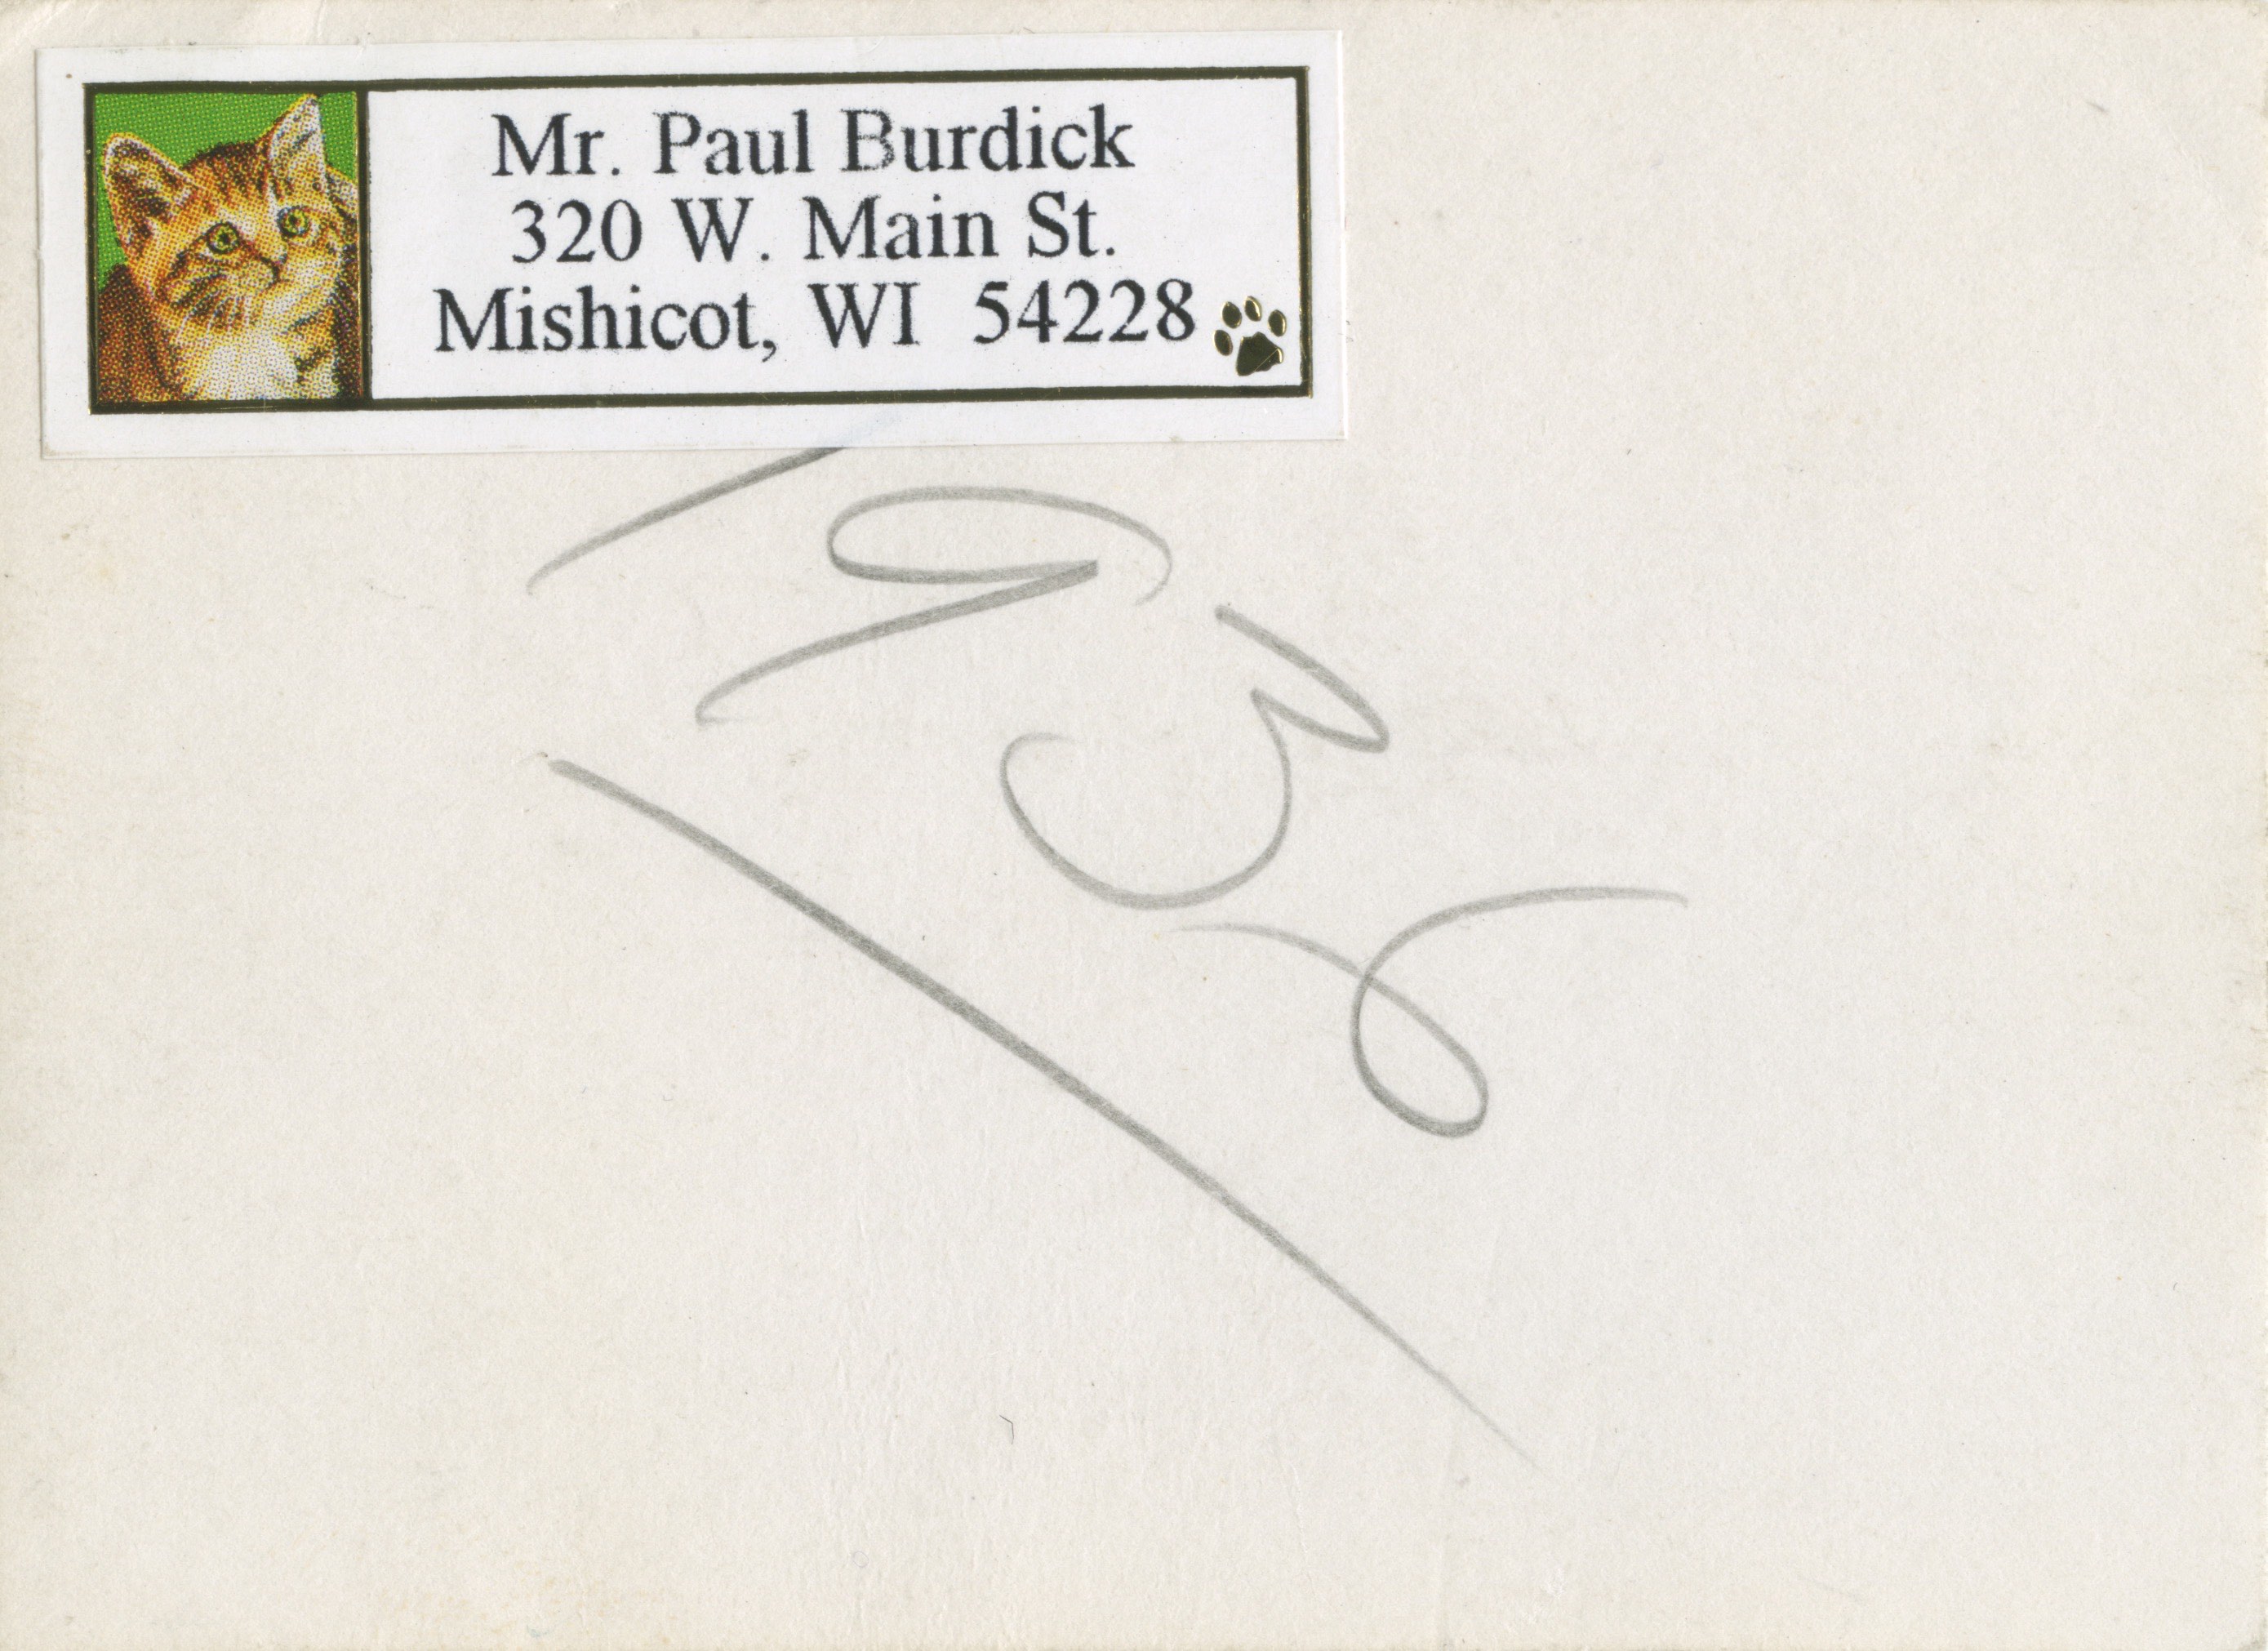 Mr. Paul Burdick
320 W. Main St.
Mishicot, WI 54228
1936